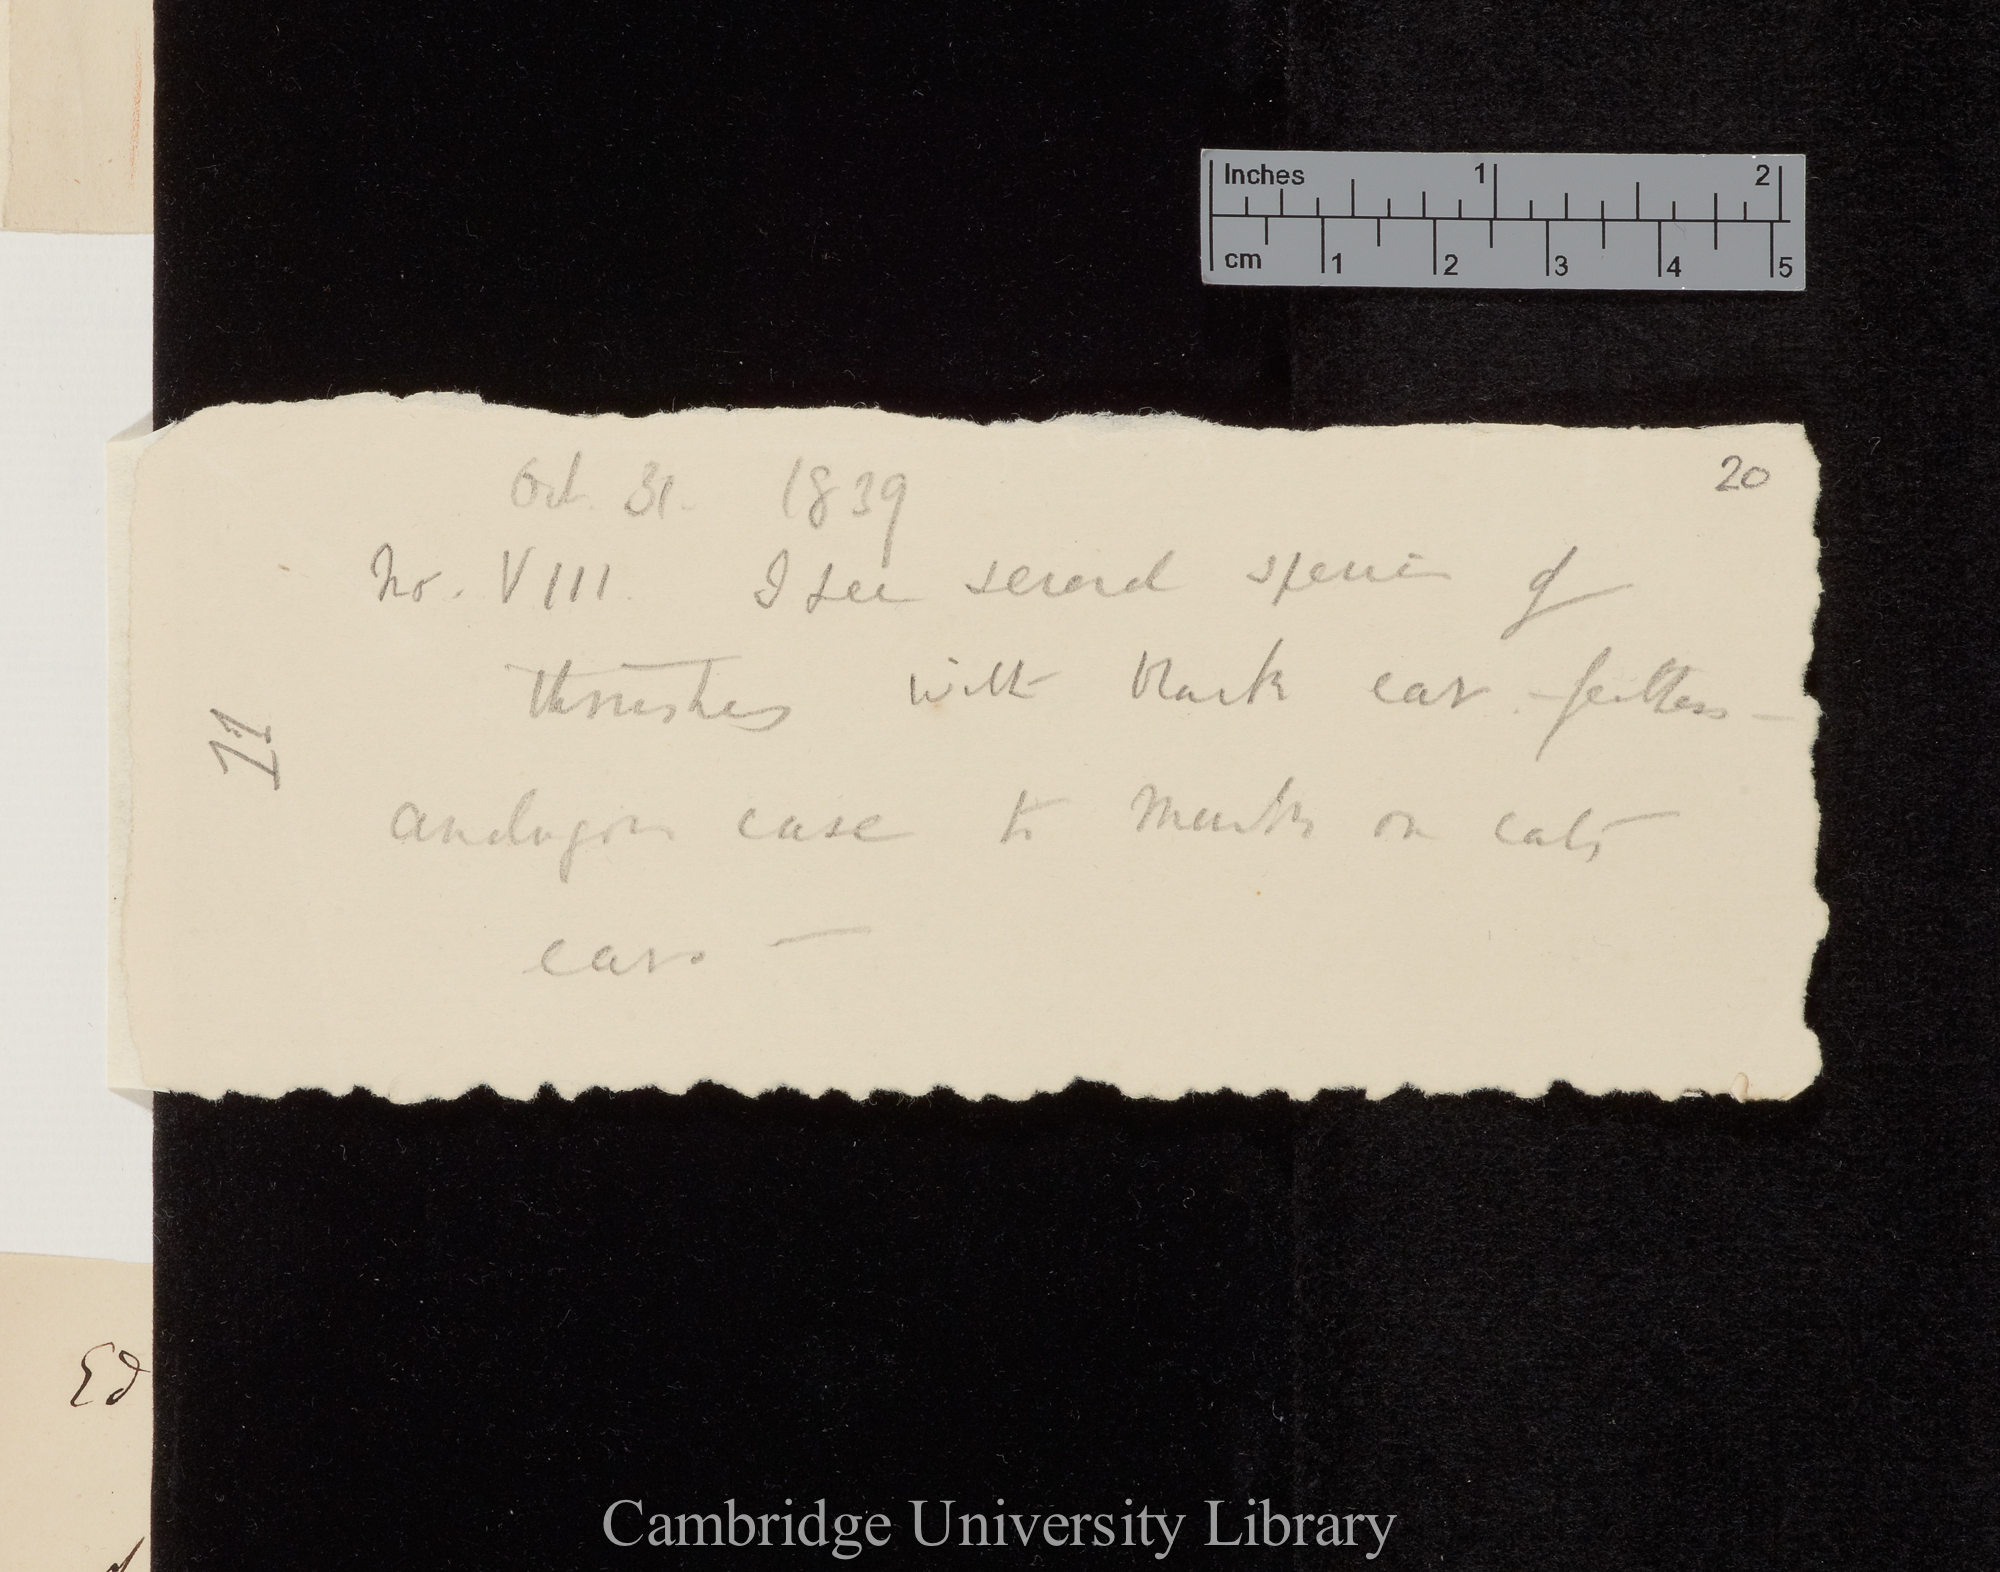 Inches 1 2
cm 1 2 3 4 5
20
Oct. 31. 1839
No. VIII. I see several species of
thrushes with black ear-feathers —
analogous case to marks on cats
ears —
11
Ed
Cambridge University Library